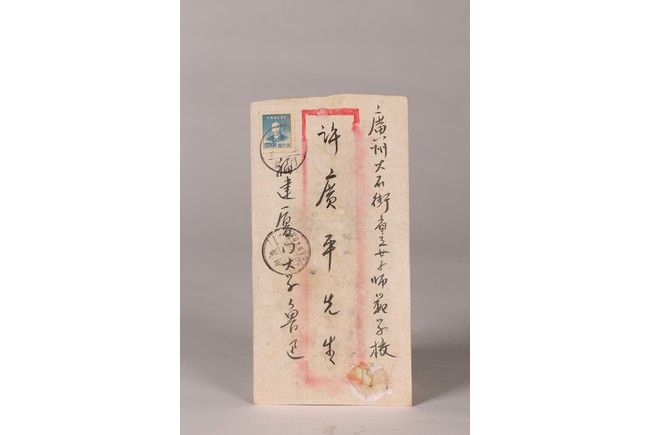 廣州大石街省立女子師範学校
許廣平先生
福建廈门大学魯迅